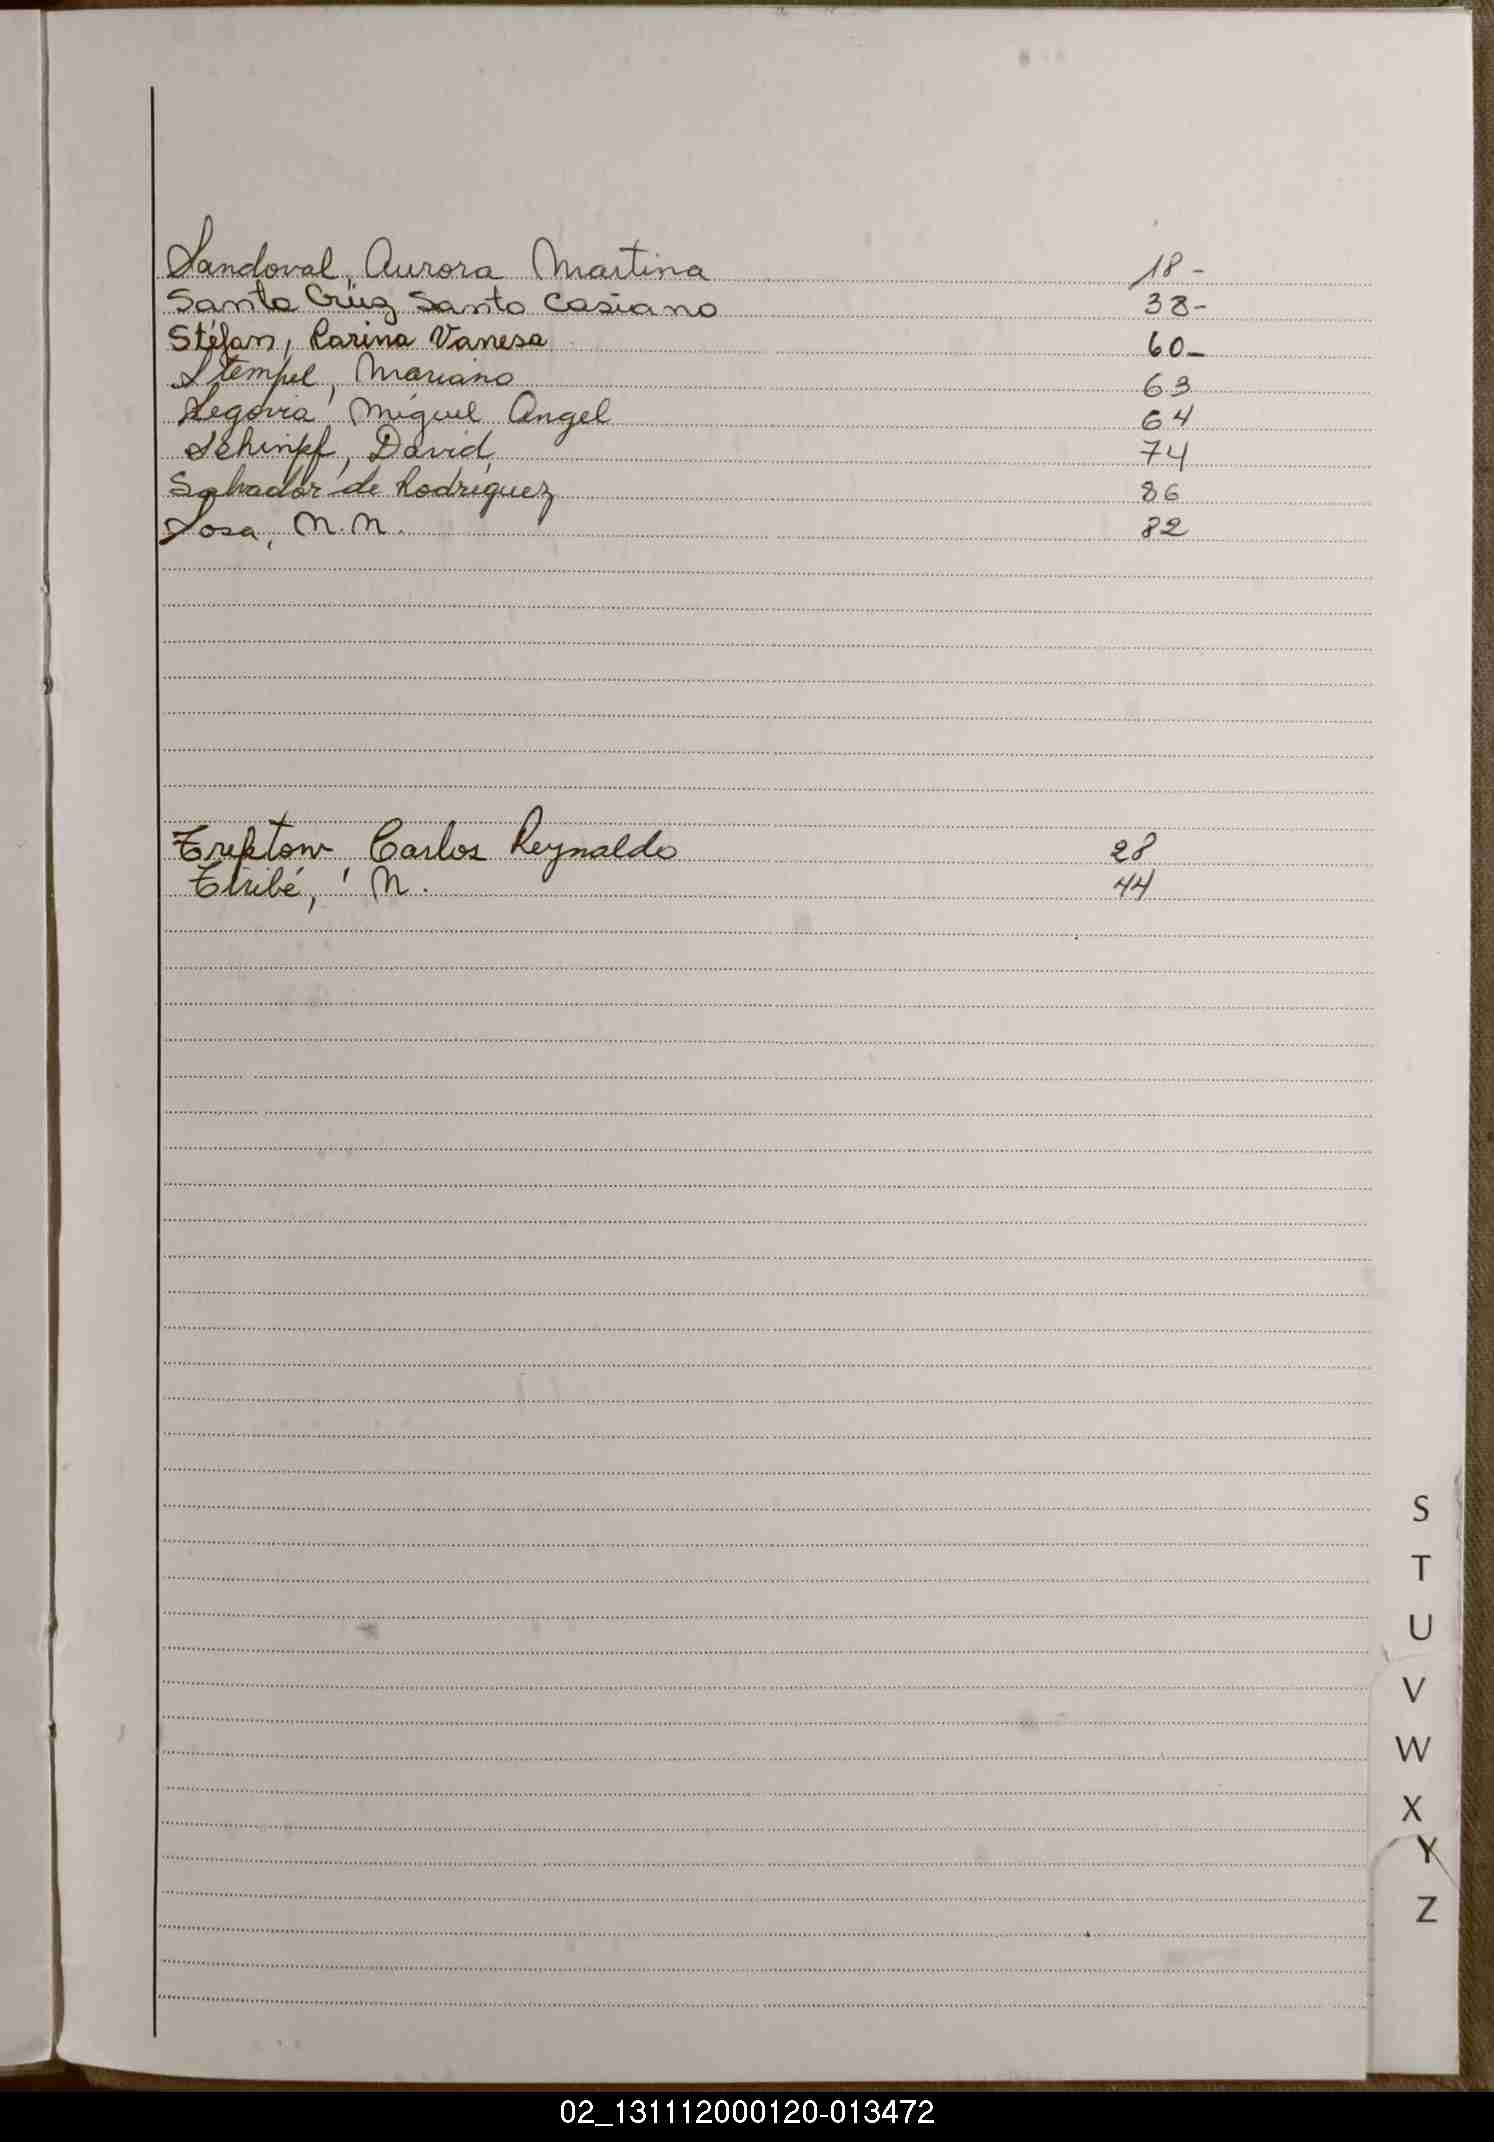 Sandoval, Aurora Martina 18-
Santa Cruz Santo Casiano 38-
Stéfan, Karina Vanesa 60-
Stempel, Mariano 63
Segovia Miguel Angel 64
Schimpf, David 74
Salvador de Rodriguez 86
Sosa, N.N. 82
Treptow Carlos Reynaldo 28
N. 44
S
T
U
V
W
X
Y
Z
02_131112000120-013472